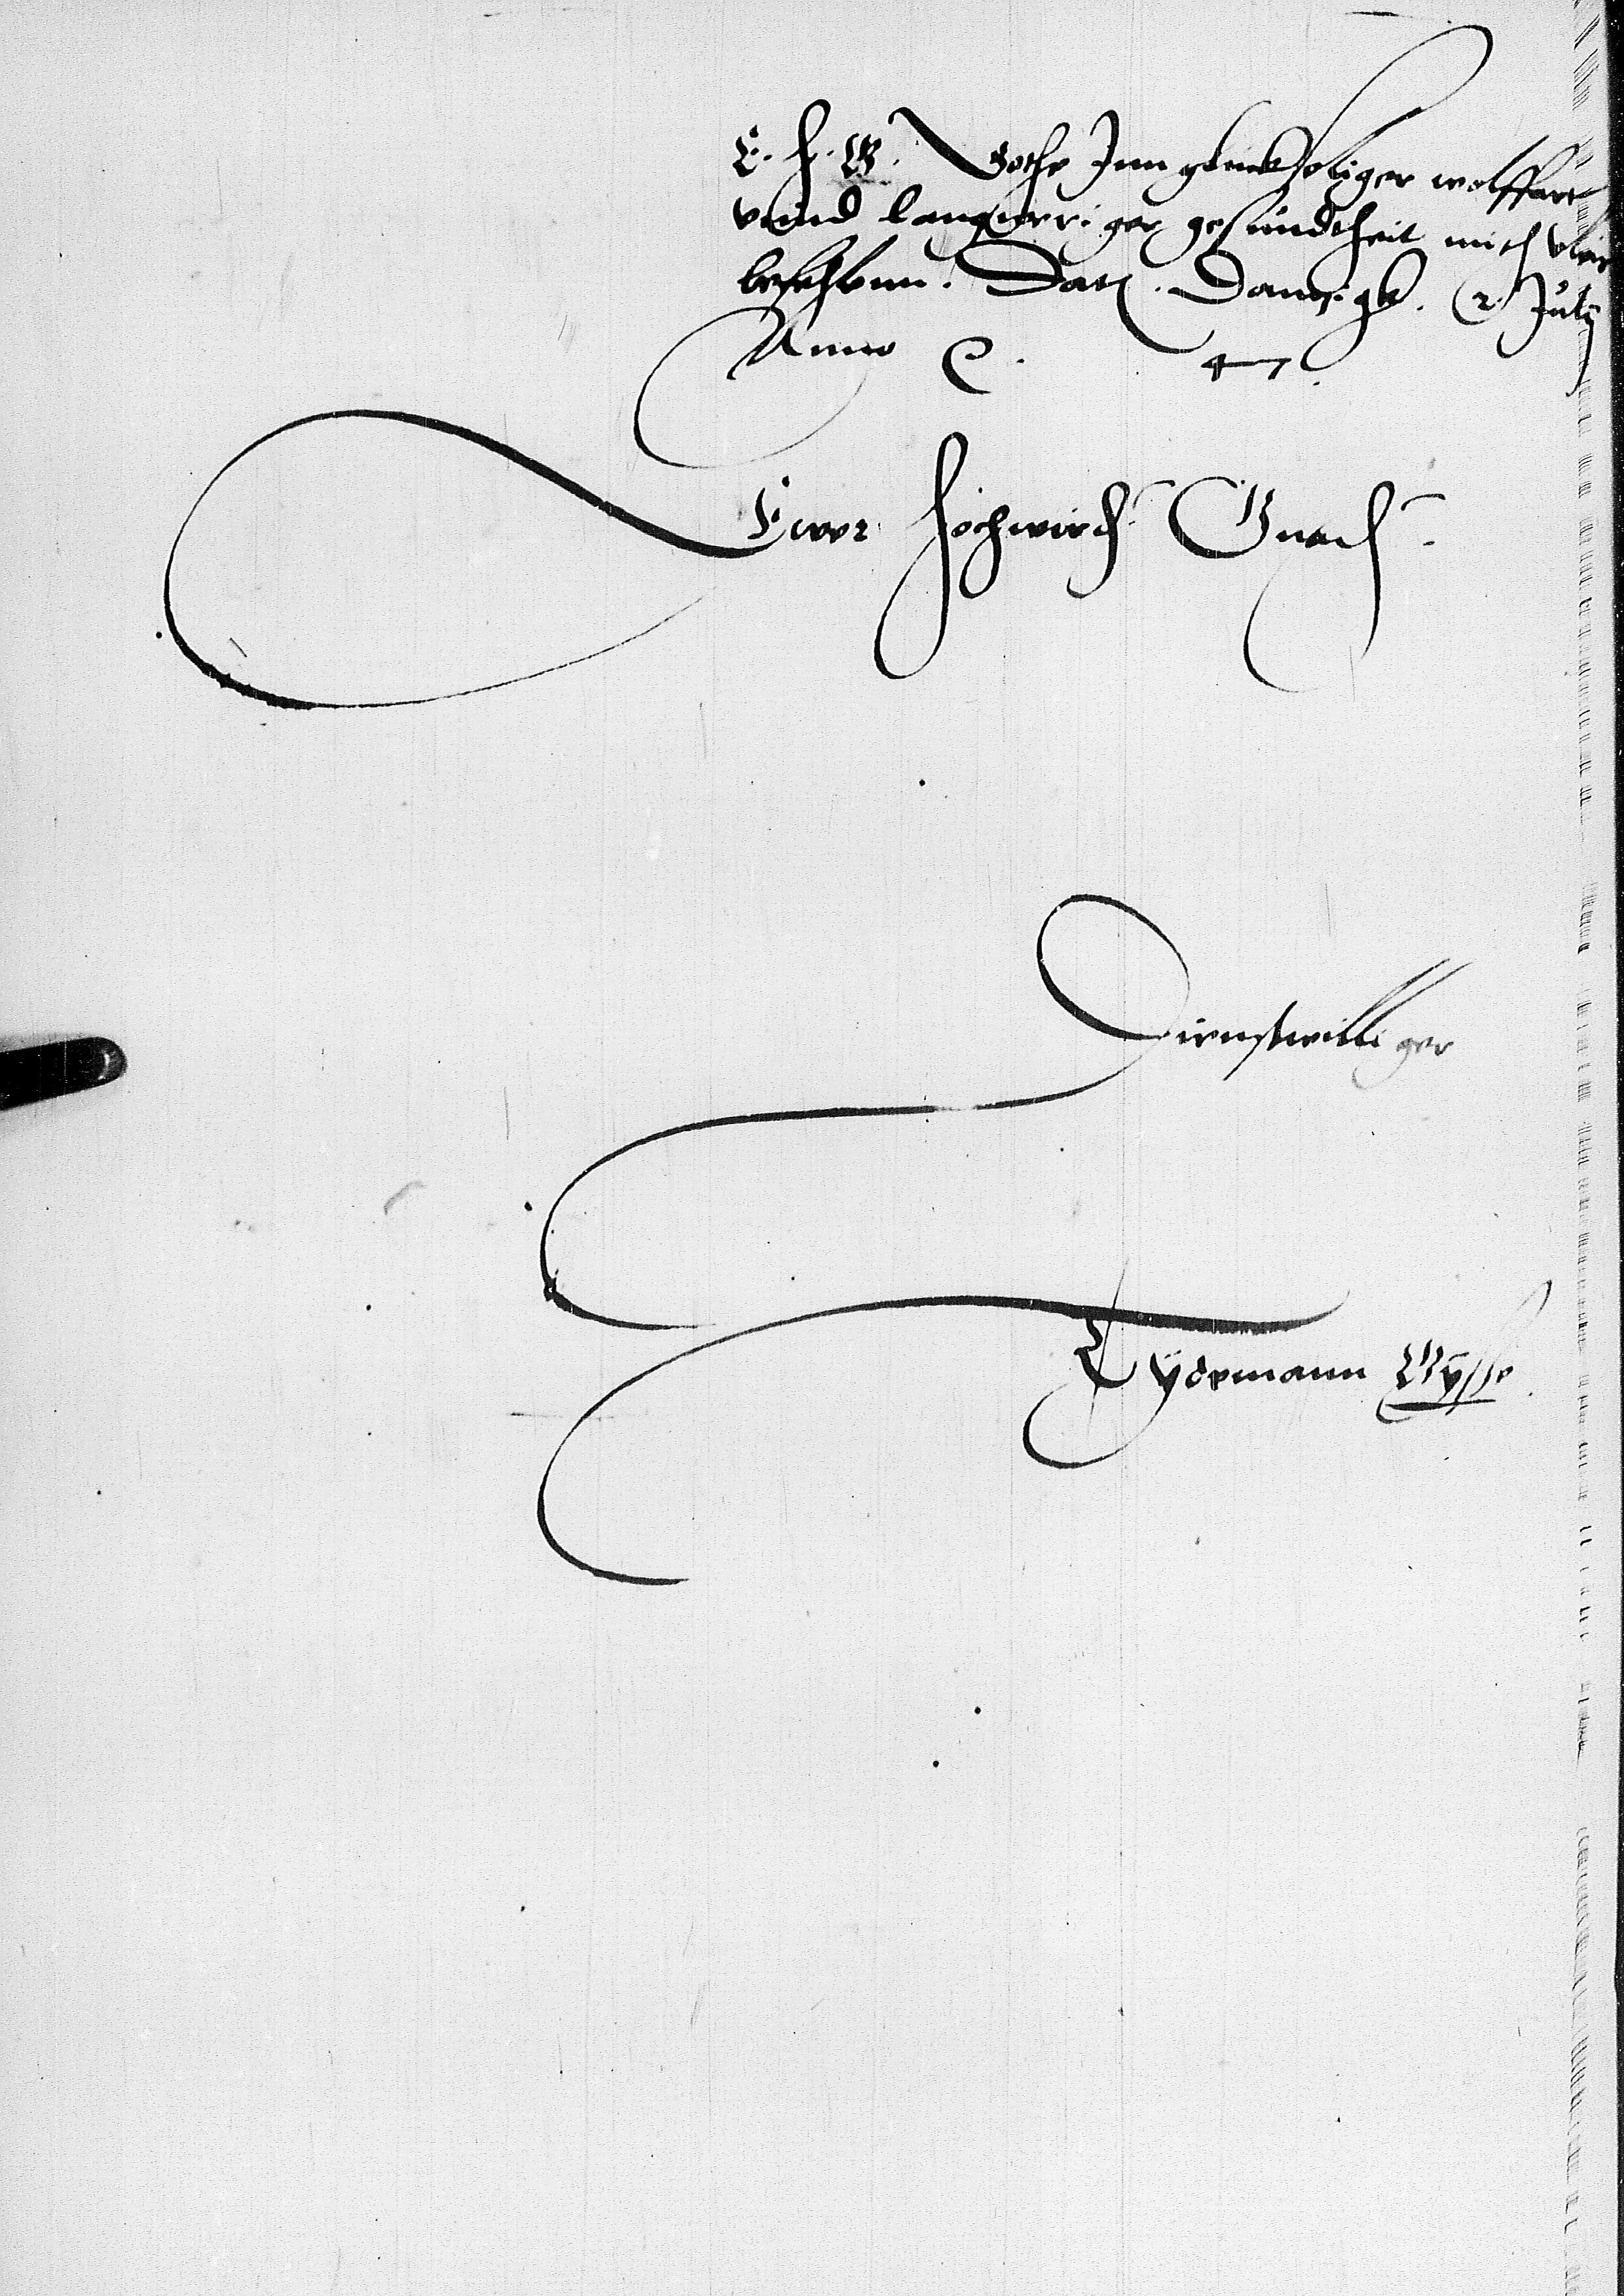 E. h. G. Gothe Inn glucksoliger wolffart
vnnd langwiriger gesundtheit mich vleis
befehlenn. Datz. Danzigk. 2 July
Anno 47.
Ewer hochwird. Gnad.
Dienstwilliger
Tydemann Gyse